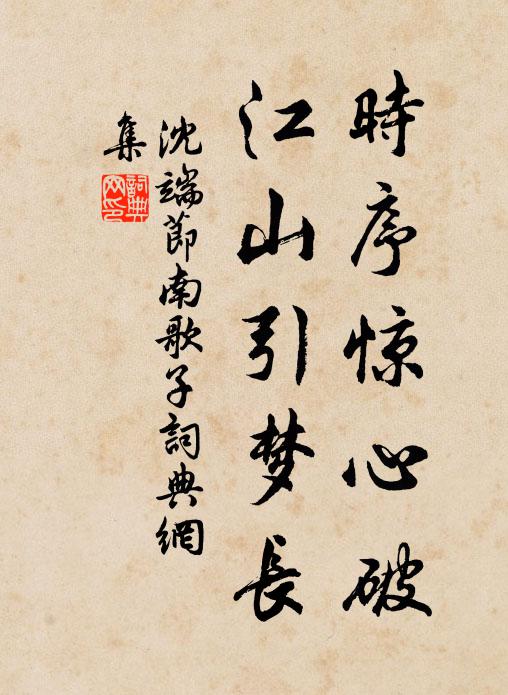 時序惊心破
江山引梦長
沈端節南歌子詞典網
集
詞典
网印